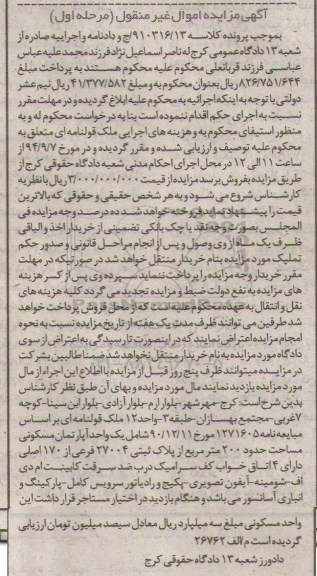 آگهی مزایده اموال غیر منقول (مرحله اول)
بموجب پرونده کلاسه ۹۱۰۳۱۶/۱۳ج و دادنامه و اجراییه صادره از
شعبه ۱۳ دادگاه عمومی کرج له ناصر اسماعیل نژاد فرزند محمد علیه عباس
عباسی فرزند قربانعلی محکوم علیه محکوم هستند به پرداخت مبلغ
۸۲۶/۷۵۱/۶۴۴ ریال بعنوان محکوم به و مبلغ ۴۱/۳۷۷/۵۸۲ ریال نیم عشر
دولتی با توجه به اینکه اجرائیه به محکوم علیه ابلاغ گردیده و در مهلت مقرر
نسبت به اجرای حکم اقدام ننموده است بنا به درخواست محکوم له و به
منظور استیفای محکوم به و هزینه های اجرایی ملک قولنامه ای متعلق به
محکوم علیه توصیف و ارزیابی شده و مقرر گردیده و در مورخ ۹۴/۹/۷ از
ساعت ۱۱ الی ۱۲ در محل اجرای احکام مدنی شعبه دادگاه حقوقی کرج از
طریق مزایده بفروش برسد مزایده از قیمت ۳/۰۰۰/۰۰۰/۰۰۰ ریال با نظریه
کارشناس شروع می شود و به هر شخص حقیقی و حقوقی که بالاترین
قیمت را پیشنهاد نماید فروخته خواهد شد ده درصد وجه مزایده فی
المجلس بصورت وجه نقد یا چک بانکی تضمینی از خریدار اخذ و الباقی
ظرف یک ماه از وی وصول و پس از انجام مراحل قانونی و صدور حکم
تملیک مورد مزایده بنام خریدار منتقل خواهد شد در صورتیکه در مهلت
مقرر خریدار وجه مزایده را پرداخت ننماید سپرده وی پس از کسر هزینه
های مزایده به نفع دولت ضبط و مزایده تجدید می گردد کلیه هزینه های
نقل و انتقال به عهده محکوم علیه است که از محل فروش پرداخت خواهد
شد طرفین می توانند ظرف مدت یک هفته از تاریخ مزایده نسبت به نحوه
انجام مزایده اعتراض نمایند که در اینصورت تا رسیدگی به اعتراض از سوی
دادگاه مورد مزایده به نام خریدار منتقل نخواهد شد ضمنا طالبین بشرکت
در مزایده میتوانند ظرف پنج روز قبل از مزایده با اطلاع این اجرا از مال
مورد مزایده بازدید نمایند مال مورد مزایده و بهای آن طبق نظر کارشناس
بدین شرح است: کرج-مهرشهر-بلوار ارم-بلوار آزادی-بلوار ابن سینا-کوچه
۷ غربی-مجتمع بهسازان-طبقه۳-واحد۱۲ ملک قولنامه ای بر اساس
مبایعه نامه ۱۲۷۱۶۰۵ مورخ ۹۰/۱۲/۱۱ شامل یک واحد آپارتمان مسکونی
مساحت حدود ۲۰۰ متر مربع از پلاک ثبتی ۲۷۰۰۴ فرعی از ۱۷۰ اصلی
دارای ۴ اتاق خواب کف سرامیک درب ضد سرقت کابینت ام دی
اف-شومینه-آیفون تصویری-پکیج و رادیاتور سرویس کامل-پارکینگ و
انباری آسانسور می باشد و هنگام بازدید در اختیار مستاجر قرار داشت این
واحد مسکونی مبلغ سه میلیارد ریال معادل سیصد میلیون تومان ارزیابی
گردیده است م/الف ۲۶۷۶۲
دادورز شعبه ۱۳ دادگاه حقوقی کرج